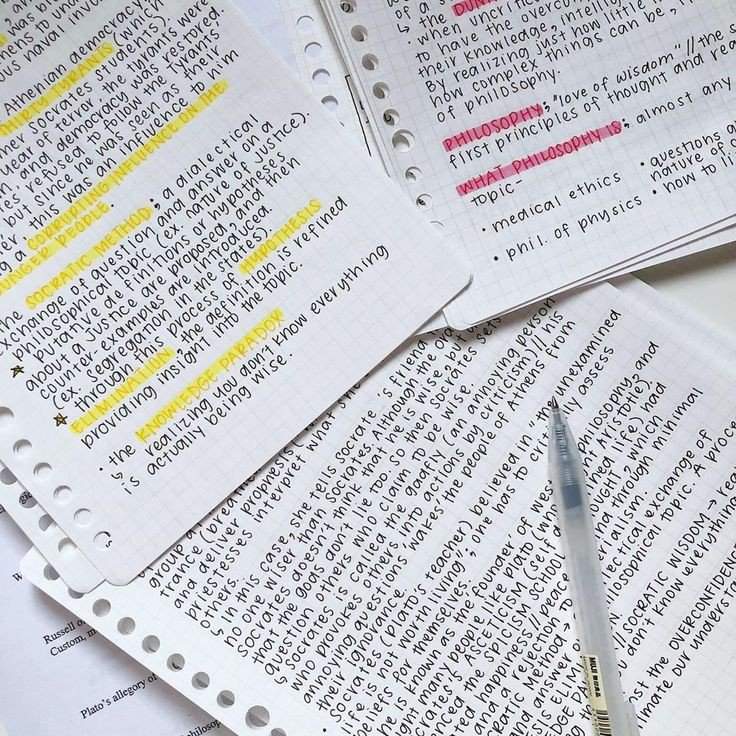 was
ous naval invo
Athenian democracy
THIRTY TYRANTS (which
her Socrates students).
year of terror the tyrants were
and democracy was restored.
es refused to follow the tyrants'
but since he was seen as their
this was an influence to him
g a CORRUPTING INFLUENCE ON THE
PEOPLE.
the SOCRATIC METHOD; a dialectical
exchange of question and answer on a
philosophical topic (ex. nature of justice).
putative definitions or hypotheses
about a justice are proposed, and then
counter-examples are introduced
(ex. segregation in the states).
through this process of HYPOTHESIS
ELIMINATION, the definition is refined
providing insight into the topic.
• the KNOWLEDGE PARADOX
↳ realizing you don't know everything
is actually being wise.
of a s
the DUN
↳ when uncriti
to have the overcon
their knowledge, intellig
By realizing just how little
how complex things can be, i
of philosophy.
PHILOSOPHY; "love of wisdom" // the s
first principles of thought and rea
WHAT PHILOSOPHY IS; almost any
topic-
• medical ethics
• questions a
nature of
• phil. of physics
• how to li
group at
trance (breathe
and deliver prophe
priestesses interpret what she
others.
↳ In this case, she tells Socrate's friend
no one wiser than Socrates. Although the ora
Socrates doesn't think that he is wise, but
that the gods don't lie too. So then Socrates sets
question others who claim to be wise.
↳ Socrates is called the gadfly (an annoying person
who provokes others into actions by criticism) // his
annoying questions wakes the people of Athens from
their ignorance.
• Socrates (Plato's teacher) believed in "the unexamined
life is not worth living"; one has to critically assess
beliefs for themselves.
• he is known as the founder of western philosophy and
taught many people like Plato (who taught Aristotle).
• Socrates' ASCETICISM (self
CYNICISM SCHOOL OF THOUGHT, which had
happiness // peace of mind through minimal
and rejection to materialism.
Socratic Method →
and answer on a philosophical topic. A proce
// SOCRATIC WISDOM → rea
you don't know everything
st the OVERCONFIDENCE
imate our underst
Russell of
Custom, m
Plato's allegory of
philosoph
MUJI